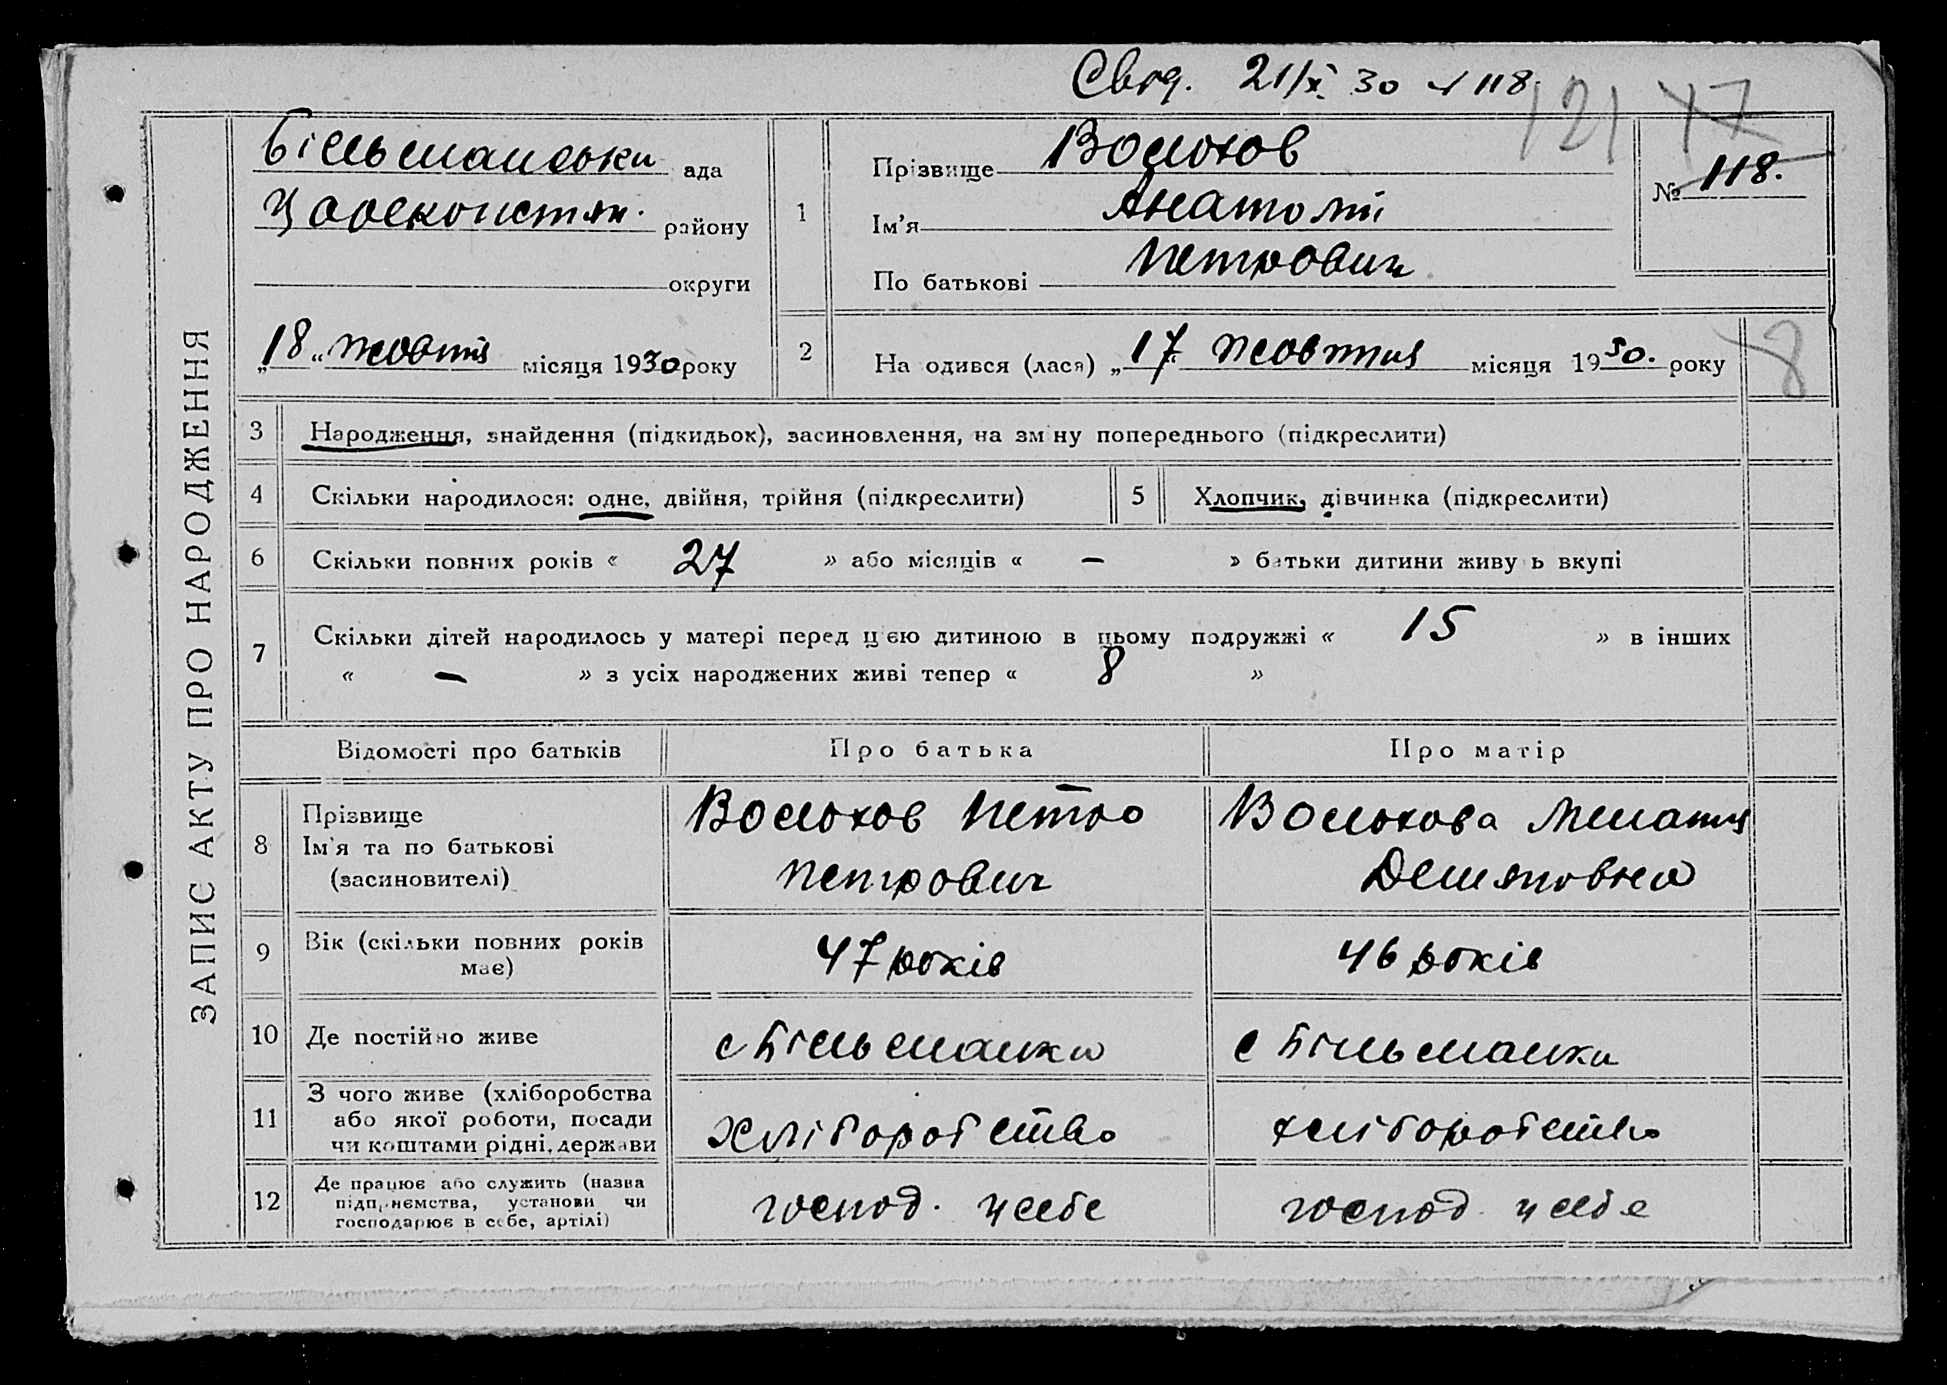 Свід. 21/X 30 № 118.
121 47
ЗАПИС АКТУ ПРО НАРОДЖЕННЯ
Більманськи ада
району
округи
„18“ жовтня місяця 1930 року
1
Прізвище Волохов
Ім'я Анатолій
По батькові Петрович
№ 118.
2
На одився (лася) „17“ жовтня місяця 1930. року
8
3 Народження, знайдення (підкидьок), засиновлення, на зм ну попереднього (підкреслити)
4 Скільки народилося: одне, двійня, трійня (підкреслити) 5 Хлопчик, дівчинка (підкреслити)
6 Скільки повних років « 27 » або місяців « – » батьки дитини живу ь вкупі
7 Скільки дітей народилось у матері перед цією дитиною в цьому подружжі « 15 » в інших
« – » з усіх народжених живі тепер « 8 »
Відомості про батьків Про батька Про матір
8 Прізвище
Ім'я та по батькові
(засиновителі)
Волохов Петро
Петрович
Волохова
9 Вік (скільки повних років
має)
47 років
46 років
10 Де постійно живе
с Більманки
с Більманки
11 З чого живе (хліборобства
або якої роботи, посади
чи коштами рідні, держави
хліборобство
хліборобство
12 Де працює або служить (назва
підприємства, установи чи
господарює в себе, артілі)
господ. у себе
господ. у себе